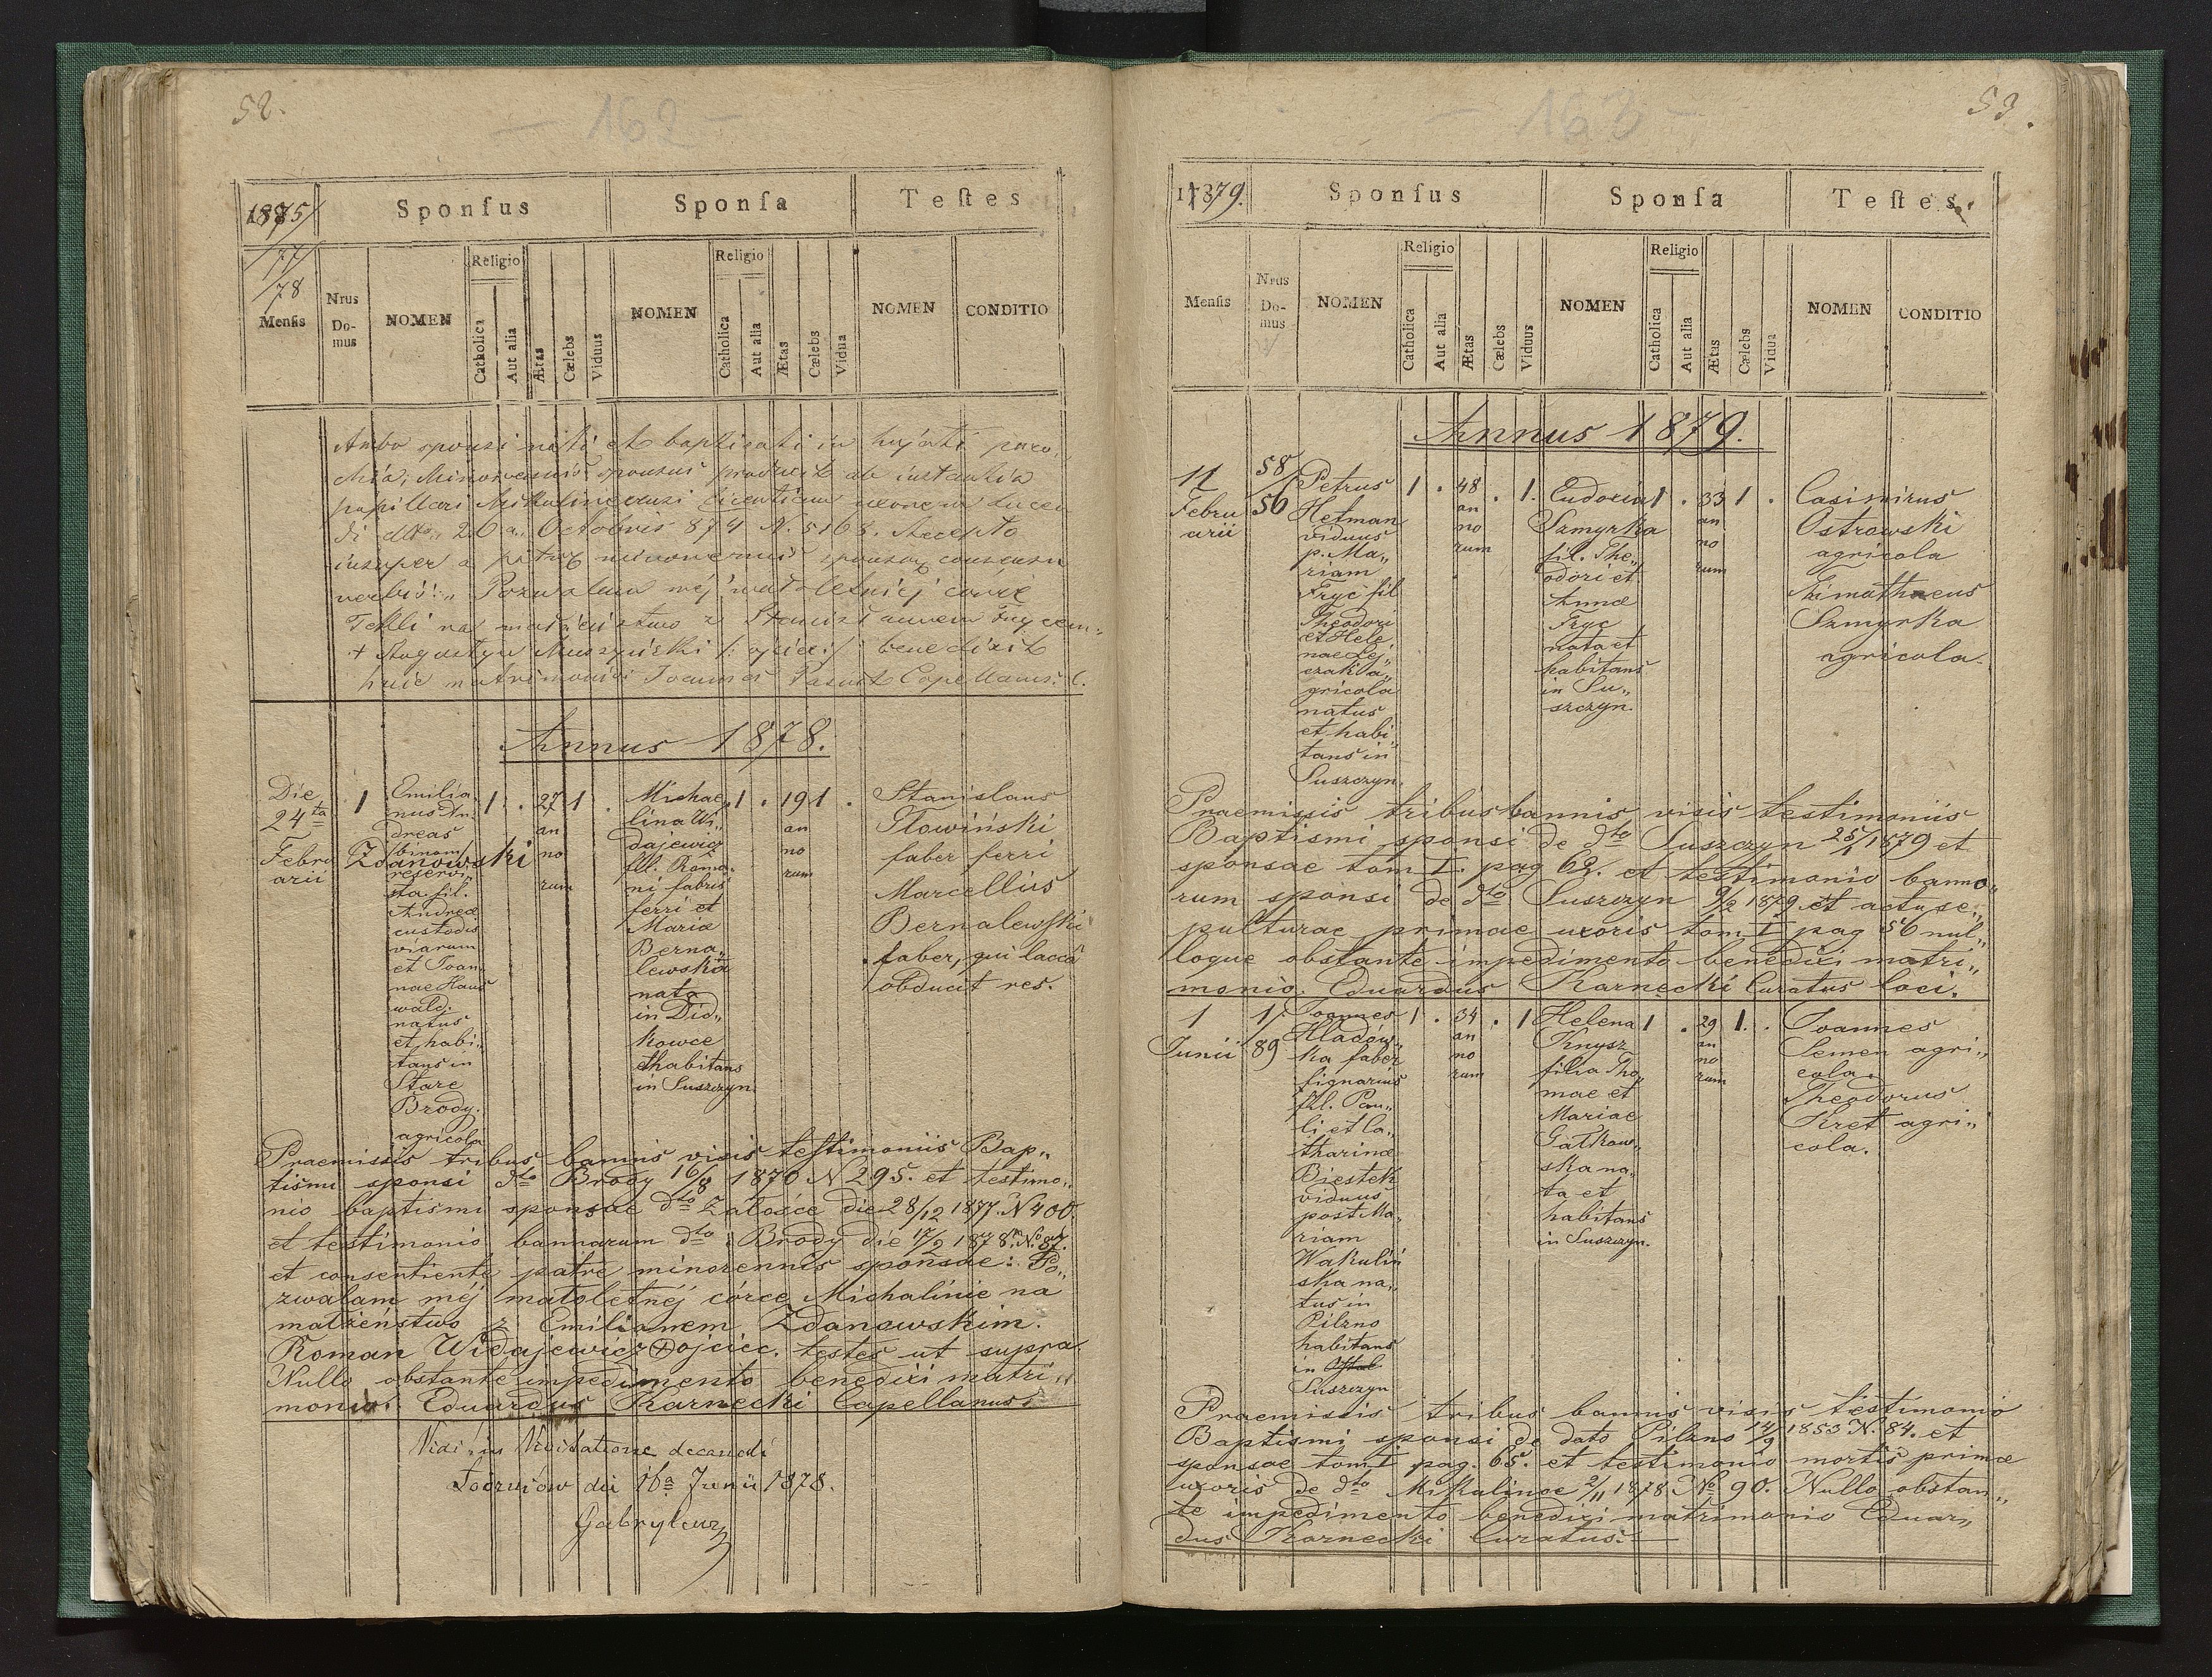 52.
— 162 —
1875/
Sponſus
Sponſa
Teſtes
/77/
/78
Menſis
Nrus
Do-
mus
NOMEN
Religio
Catholica
Aut alia
Ætas
Cælebs
Viduus
NOMEN
Religio
Catholica
Aut alia
Ætas
Cælebs
Vidua
NOMEN
CONDITIO
Ambo sponsi nati et baptisati in hujati paro,
chia, Minorennis sponsus produxit ab instantia
pupillari Mikulincensi licentiam uxorem ducen
di dtto 26a Octobris 874 N. 5168. Accepto
insuper a patre minorennis sponsae consensu
verbis: „Pozwalam méj małoletniéj córce
Tekli na małżeństwo z Stanisławem
+ Augustyn /: ojciec :/ benedixit
huic matrimonio Joannes Capellanus l.
Annus 1878.
Die
24ta
Febru
arii
1
Emilia
nus An
dreas
/binom/
Zdanowski
reservi,
sta. fil.
Andreæ
custodis
viarum
et Joan
nae Haus
wald.
natus
et habi„
tans in
Stare
Brody.
agricola
1 . 27 1 .
an
no
rum
Michae„
lina Wi„
dajewicz
fil. Roma„
ni fabris
ferri et
Mariæ
Berna„
lewska
nata
in Did„
kowce
et habitans
in Suszczyn.
1 . 19 1 .
an
no
rum
Stanislaus
Głowiński
faber ferri
Marcellius
Bernalewſki
faber, qui laccâ
obducit res.
Praemissis tribus bannis visis testimoniis Bap„
tismi sponsi dto Brody 16/8 1870 N 295. et testimo„
nio baptismi sponsae dto Załośce die 28/12 1877. N 400
et testimonio bannorum dto Brody die 17/2 1878. No. 87.
et consentiente patre minorennis sponsae: Po„
zwalam méj małoletnéj córce Michalinie na
małżeństwo z Emilianem Zdanowskim.
Roman Widajewicz + ojciec. testes ut supra
Nullo obstante impedimento benedixi matri„
monio. Eduardus Karnecki Capellanus.
Vidi in Visitatione decanali
die 16a Junii 1878.
53.
— 163 —
1879.
Sponſus
Sponſa
Teſtes.
Menſis
Nrus
Do-
mus
NOMEN
Religio
Catholica
Aut alia
Ætas
Cælebs
Viduus
NOMEN
Religio
Catholica
Aut alia
Ætas
Cælebs
Vidua
NOMEN
CONDITIO
Annus 1879.
11
Febru
arii
58/
56
Petrus
Hetman
viduus
p. Ma„
riam
Fryc fil
Theodori
et Hele
nae Lej„
czak a„
gricola
natus
et habi
tans in
Suszczyn.
1 . 48 . 1.
an
no
rum
Eudocia
Szmyrka
fil. The„
odori et
Annæ
Fryc
nata et
habitans
in Su„
szczyn.
1 . 33 1 .
an
no
rum
Casimirus
Ostrowski
agricola
Timathaeus
Szmyrka
agricola.
Praemissis tribus bannis visis testimoniis
Baptismi sponsi de dto Suszczyn 25/1 1879 et
sponsae tom I. pag 62. et testimonio banno„
rum sponsi de dto Suszczyn 9/2 1879 et actu se„
pulturae primae uxoris tom I pag 56 nul„
loque obstante impedimento benedixi matri„
monio. Eduardus Karnecki Curatus loci.
1
Junii
1/
89
Joannes
Hladów„
ka faber
lignarius
fil. Pau„
li et Ca„
tharinæ
Biestek
viduus
post Ma„
riam
Wakuliń
ska na„
tus in
Pilzno
habitans
in
Suszczyn
1 . 34 . 1
an
no
rum
Helena
Knysz
filia Tho„
mae et
Mariae
Gałkow„
ska na„
ta et
habitans
in Suszczyn.
1 . 29 1. .
an
no
rum
Joannes
Semen agri„
cola.
Theodorus
Kret agri„
cola.
Praemissis tribus bannis visis testimonio
Baptismi sponsi de dato Pilzno 14/9 1853 N. 84. et
sponsae tom I pag. 65. et testimonio mortis primæ
uxoris de dto Mikulince 2/11 1878 No 90. Nullo obstan„
te impedimento benedixi matrimonio Eduar„
dus Karnecki Curatus.